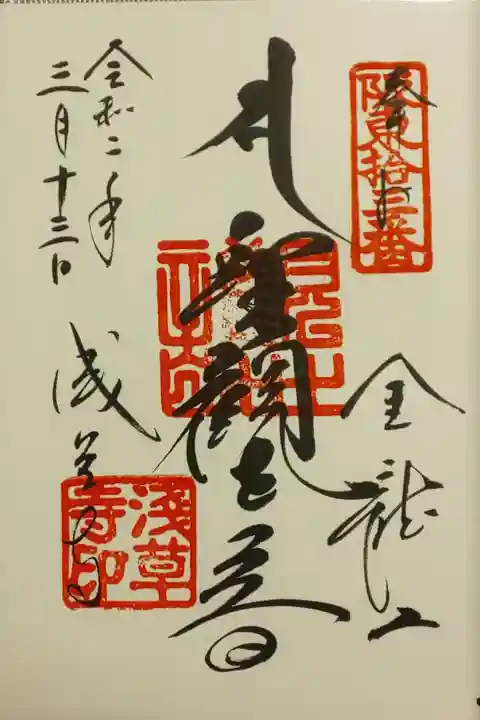 奉拝
坂東拾三番
金龍山
聖観世音
令和二年
三月十三日
浅草寺
淺草寺印